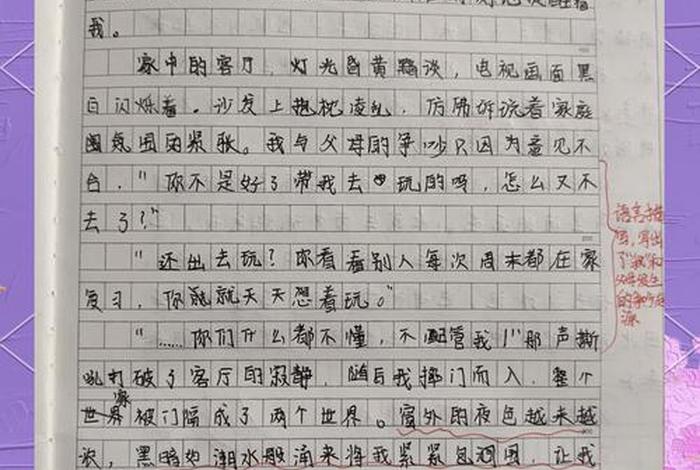 我。
家中的客厅，灯光昏黄黯淡，电视画面黑
白闪烁着。沙发上抱枕凌乱，仿佛诉说着家庭
氛围的紧张。我与父母的争吵只因为意见不
合，"你不是好了带我去玩的吗，怎么又不
去了？"
"还出去玩？你看看别人每次周末都在家
复习，你就天天想着玩。"
"……你们什么都不懂，不配管我！"那声撕
吼打破了客厅的寂静，随后我摔门而入，整个
世界被门隔成了两个世界。窗外的夜色越来越
浓，黑暗如潮水般涌来将我紧紧包围，让我
语言描
写，写出
了"我"和
父母发生
的争吵起
源